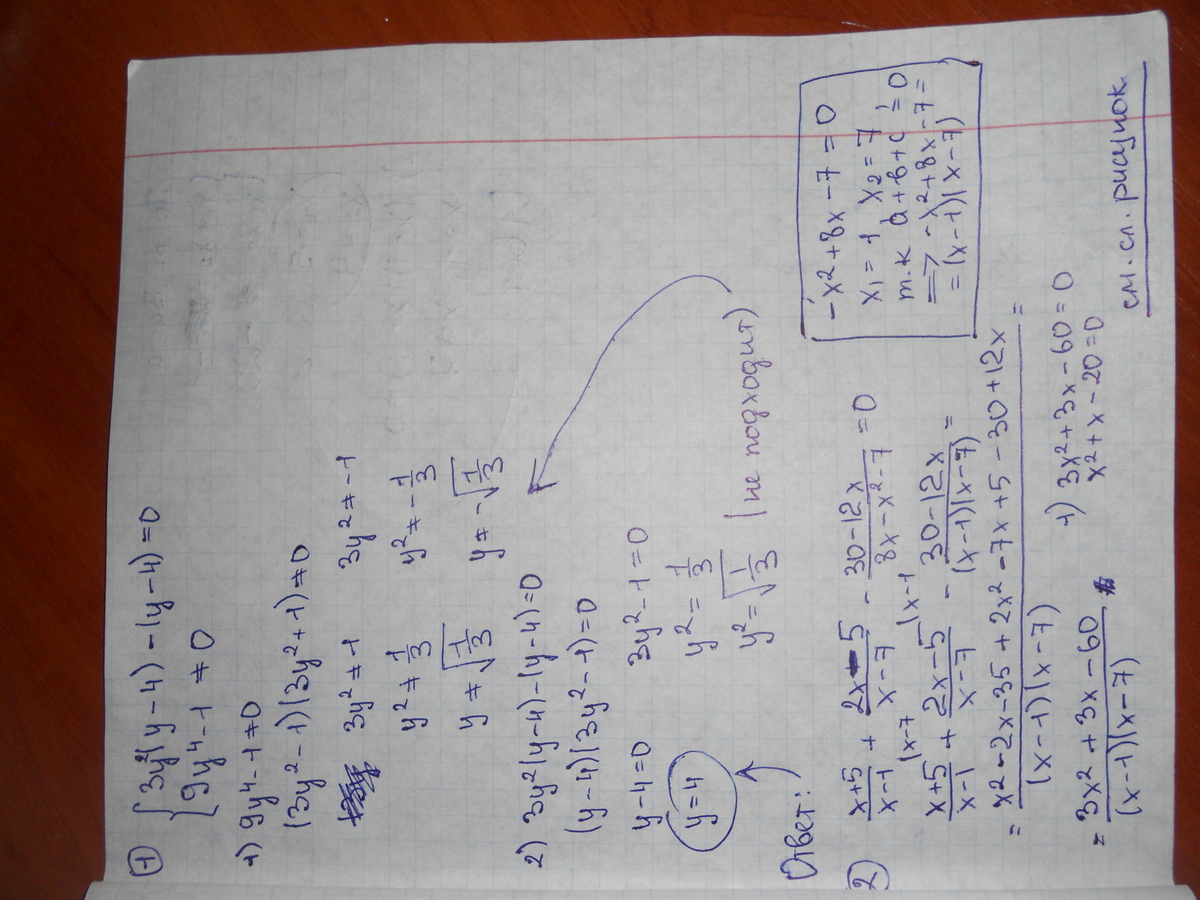 1 { 3y²(y-4) - (y-4) = 0
9y⁴-1 ≠ 0
1) 9y⁴-1≠0
(3y²-1)(3y²+1)≠0
3y²≠1 3y²≠-1
y²≠1/3 y²≠-1/3
y≠√1/3 y≠-√1/3
2) 3y²(y-4)-(y-4)=0
(y-4)(3y²-1)=0
y-4=0 3y²-1=0
y=4 y²=1/3
y²=√1/3 (не подходит)
Ответ:
2) x+5/x-1 + 2x-5/x-7 - 30-12x/8x-x²-7 = 0
x+5/x-1 (x-7 + 2x-5/x-7 (x-1 - 30-12x/(x-1)(x-7) =
= x²-2x-35+2x²-7x+5-30+12x/(x-1)(x-7) =
= 3x²+3x-60/(x-1)(x-7)
1) 3x²+3x-60=0
x²+x-20=0
-x²+8x-7=0
x₁=1 x₂=7
т.к a+b+c=0
=> -x²+8x-7=
=(x-1)(x-7)
см.сл. рисунок